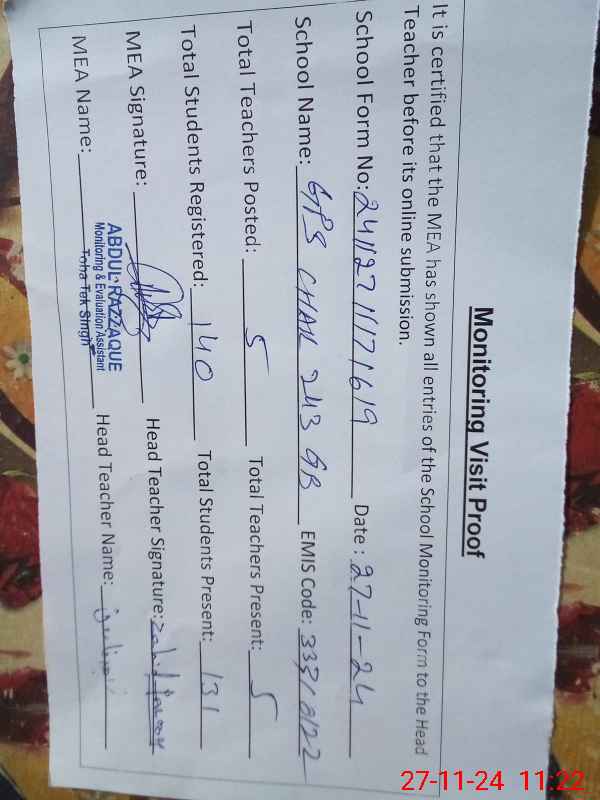 Monitoring Visit Proof
It is certified that the MEA has shown all entries of the School Monitoring Form to the Head
Teacher before its online submission.
School Form No: 24112711171619 Date : 27-11-24
School Name: GPS CHAK 243 GB EMIS Code: 33310122
Total Teachers Posted: 5 Total Teachers Present: 5
Total Students Registered: 140 Total Students Present: 131
MEA Signature: Head Teacher Signature:
MEA Name: ABDUL RAZZAQUE Head Teacher Name:
Monitoring & Evaluation Assistant
Toba Tek Singh
27-11-24 11:22